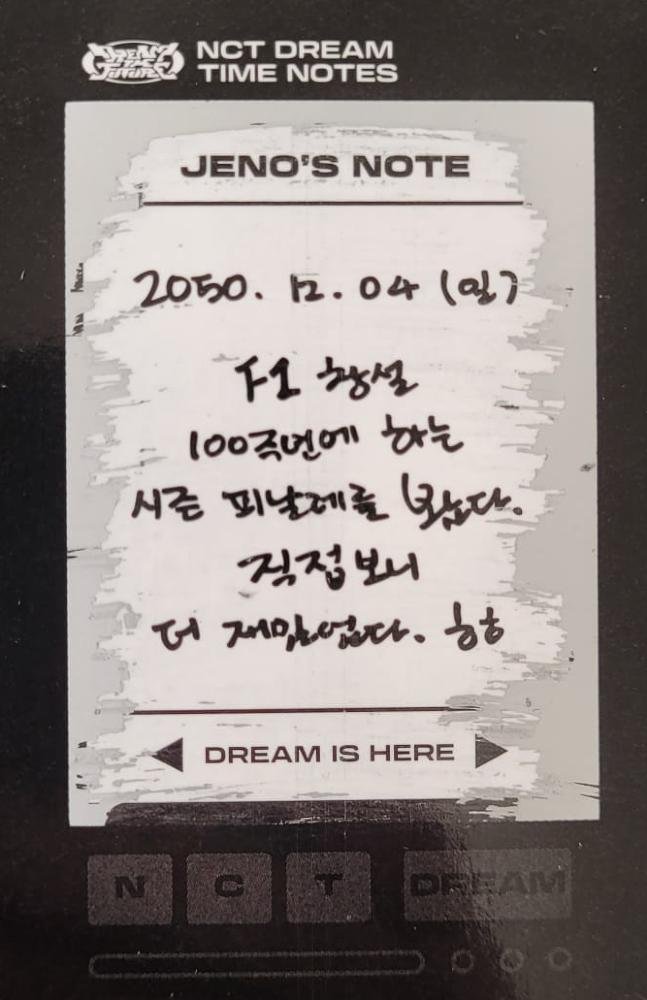 DREAM THE FUTURE
NCT DREAM
TIME NOTES
JENO'S NOTE
2050. 12. 04 (일)
F1 창설
100주년에 하는
시즌 피날레를 봤다.
직접보니
더 재밌었다. ㅎㅎ
DREAM IS HERE
N C T DREAM